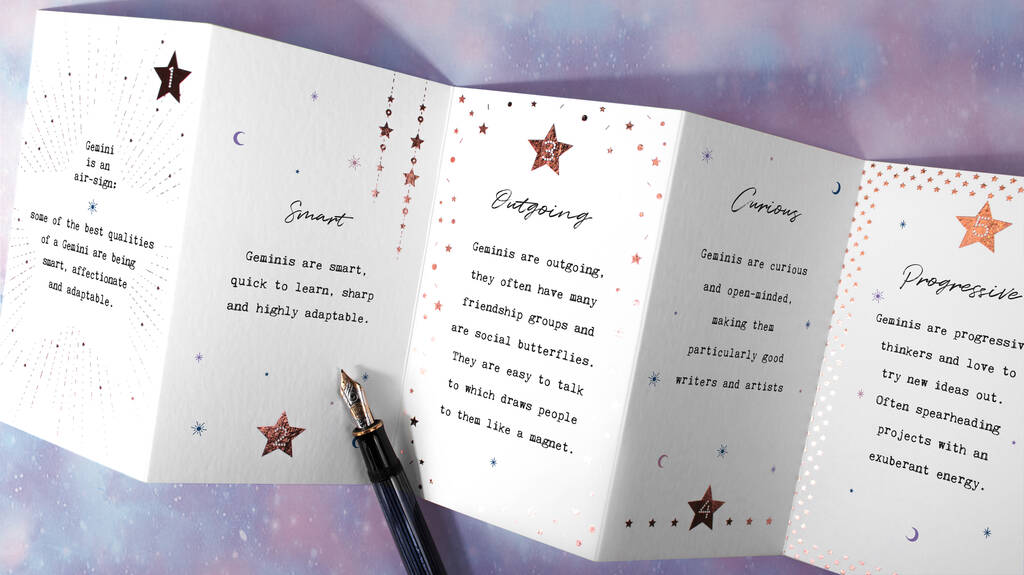 1
Gemini
is an
air-sign:
some of the best qualities
of a Gemini are being
smart, affectionate
and adaptable.
Smart
Geminis are smart,
quick to learn, sharp
and highly adaptable.
2
3
Outgoing
Geminis are outgoing,
they often have many
friendship groups and
are social butterflies.
They are easy to talk
to which draws people
to them like a magnet.
Curious
Geminis are curious
and open-minded,
making them
particularly good
writers and artists
4
5
Progressive
Geminis are progressiv
thinkers and love to
try new ideas out.
Often spearheading
projects with an
exuberant energy.